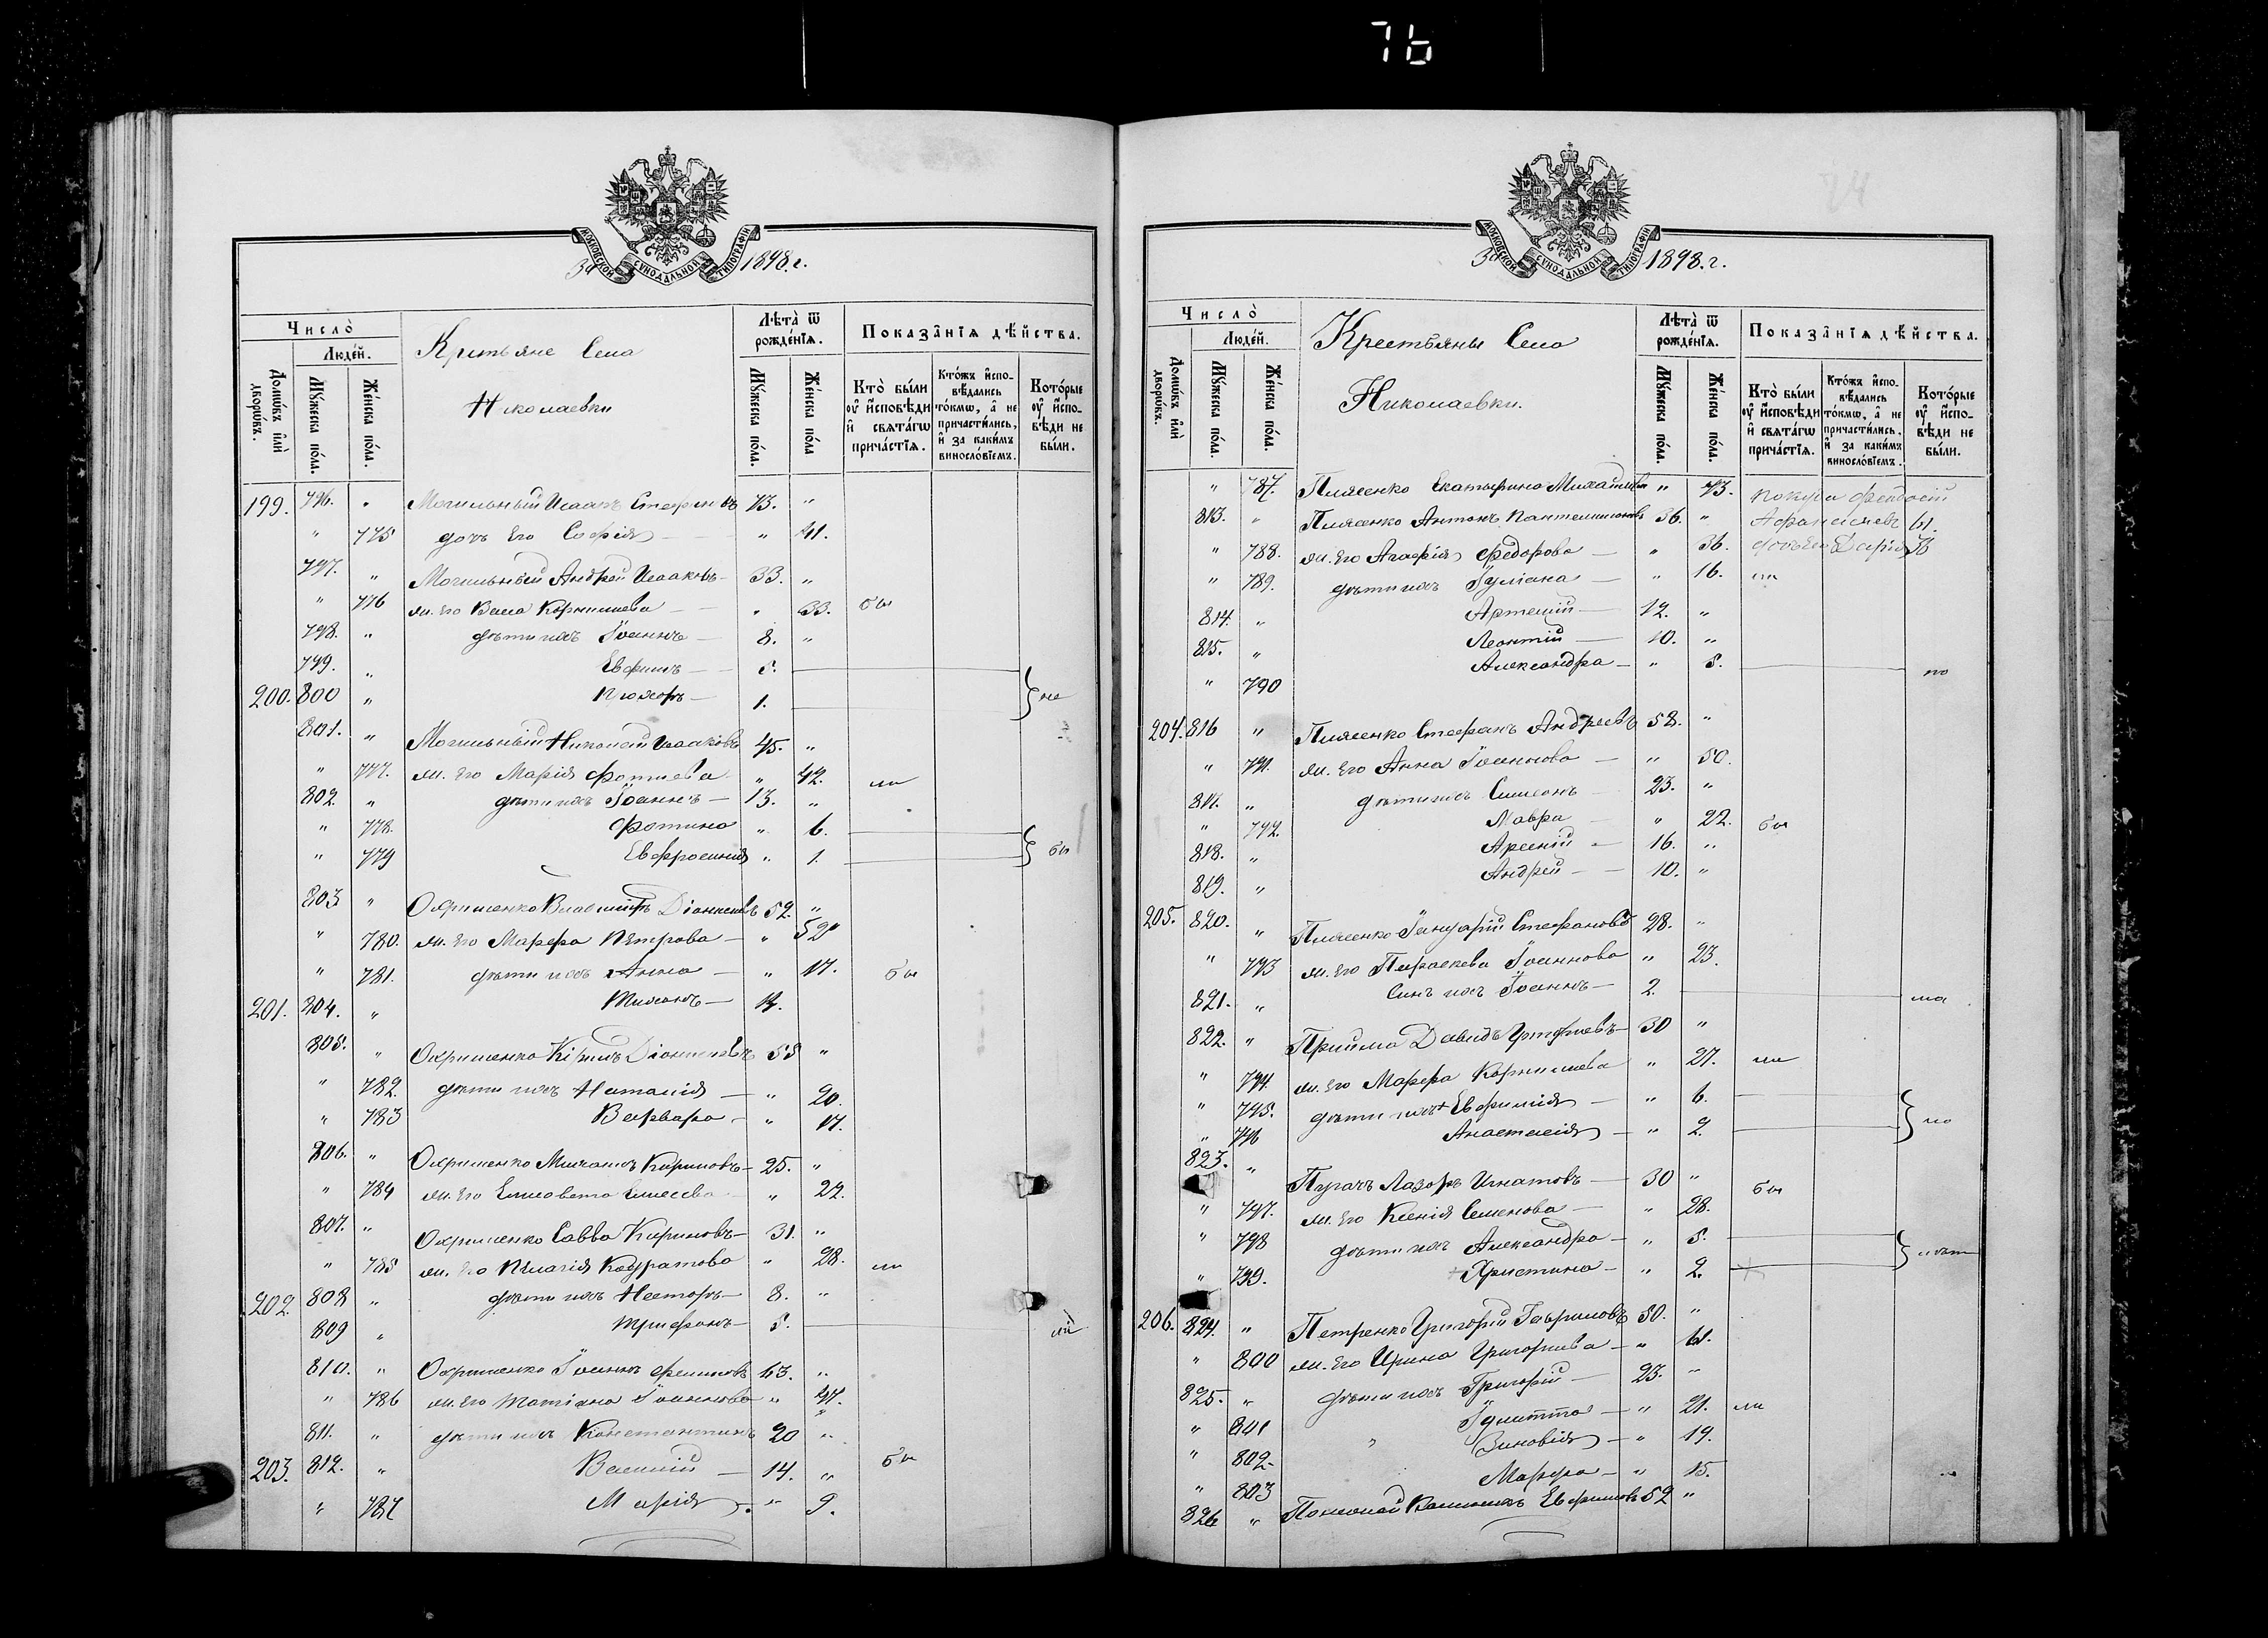 76
МОСКОВСКОЙ СУНОДАЛЬНОЙ ТИПОГРАФІИ
За 1898. г.
Число̀
Люде́й.
Домѡ́въ и҆лѝ дворѡ́въ.
Мꙋ́жеска по́ла.
Же́нска по́ла.
Крестьяне Села
Николаевки
Лѣ́та ѿ рожде́нїѧ.
Мꙋ́жеска по́ла.
Же́нска по́ла.
Показа̑нїѧ дѣ́йства.
Кто̀ бы́ли ᲂу҆ и҆сповѣ́ди и҆ свѧта́гѡ прича́стїѧ.
Кто́жъ и҆сповѣ́дались то́кмѡ, а҆ не причасти́лись, и҆ за каки́мъ виносло́вїемъ.
Кото́рые ᲂу҆ и҆сповѣ́ди не бы́ли.
199. 796. " Могильный Исаакъ Стефановъ 73. "
" 775 дочь его Софія — " 41.
797. " Могильный Андрей Исааковъ — 33. "
" 776 ж. его Васса Корнилиева — " 33. бы
798. " дѣти ихъ Іоаннъ — 8. "
799. " Евфимъ — 5.
200. 800 " Прохоръ — 1. не
801. " Могильный Николай Исааковъ 45. "
" 777. ж. его Марія Фотиева " 42. ли
802. " дѣти ихъ Іоаннъ — 13. "
" 778. Фотина " 6.
" 779 Евфросинія " 1. бы
803 " Охрименко Діонисіевъ 52. "
" 780. ж. его Марфа Петрова — " 52
" 781. дѣти ихъ Анна — " 17. бы
201. 804. " Тихонъ — 14.
805. " Охрименко Кирилъ Діонисіевъ 55 "
" 782. дѣти ихъ Наталія — " 20.
" 783 Варвара — " 17.
806. " Охрименко Михаилъ Кириловъ — 25. "
" 784 ж. его Елисавета " 22.
807. " Охрименко Савва Кириловъ — 31. "
" 785 ж. его Пелагія Кодратова " 28. ли
202. 808 " дѣти ихъ Несторъ — 8. "
809 " Трифонъ — 5. ли
810. " Охрименко Іоаннъ 63. "
" 786 ж. его Татіана Іоаннова " 47.
811. " дѣти ихъ Константинъ 20 "
203. 812. " Василій — 14. " бы
" 787 Марія — " 9.
74
МОСКОВСКОЙ СУНОДАЛЬНОЙ ТИПОГРАФІИ
За 1898. г.
Число̀
Люде́й.
Домѡ́въ и҆лѝ дворѡ́въ.
Мꙋ́жеска по́ла.
Же́нска по́ла.
Крестьяны Села
Николаевки.
Лѣ́та ѿ рожде́нїѧ.
Мꙋ́жеска по́ла.
Же́нска по́ла.
Показа̑нїѧ дѣ́йства.
Кто̀ бы́ли ᲂу҆ и҆сповѣ́ди и҆ свѧта́гѡ прича́стїѧ.
Кто́жъ и҆сповѣ́дались то́кмѡ, а҆ не причасти́лись, и҆ за каки́мъ виносло́вїемъ.
Кото́рые ᲂу҆ и҆сповѣ́ди не бы́ли.
" 787. Пилесенко Екатерина Михайлова " 73.
813. " Пилесенко Антонъ Пантелимоновъ 36. " 61.
" 788. ж. его Агафія Федорова — " 36.
" 789. дѣти ихъ Іуліана — " 16. ли
814. " Артемій — 12. "
815. " Леонтій — 10. "
" 790 Александра — " 5. но
204. 816 " Пилесенко Стефанъ Андреевъ 58. "
" 791. ж. его Анна Іоаннова — " 50.
817. " дѣти ихъ Симеонъ — 23. "
" 792. Мавра — " 22. бы
818. " Арсеній — 16. "
819. " Андрей — 10. "
205. 820. " Пилесенко Іануарій Стефановъ 28. "
" 793 ж. его Параскева Іоаннова " 23.
821. " Сынъ ихъ Іоаннъ — 2. ли
822. " Прийма Давидъ 30 "
" 794. ж. его Марфа Корнилиева " 27. ли
" 795. дѣти ихъ Евфимія — " 6.
" 796 Анастасія — " 2. но
823. " Пугачъ Лазарь Игнатовъ — 30 " бы
" 797. ж. его Ксенія Семенова — " 28.
" 798 дѣти ихъ Александра — " 5.
" 799. Христина — " 2.
206. 824. " Петренко Григорій Гавриловъ 50. "
" 800 ж. его Ирина Григориева — " 61.
825. " дѣти ихъ Григорій — 23. "
" 801 Іулитта — " 21. ли
" 802. Зиновія — " 19.
" 803 Марфа — " 15.
826 " Евфимовъ 52 "